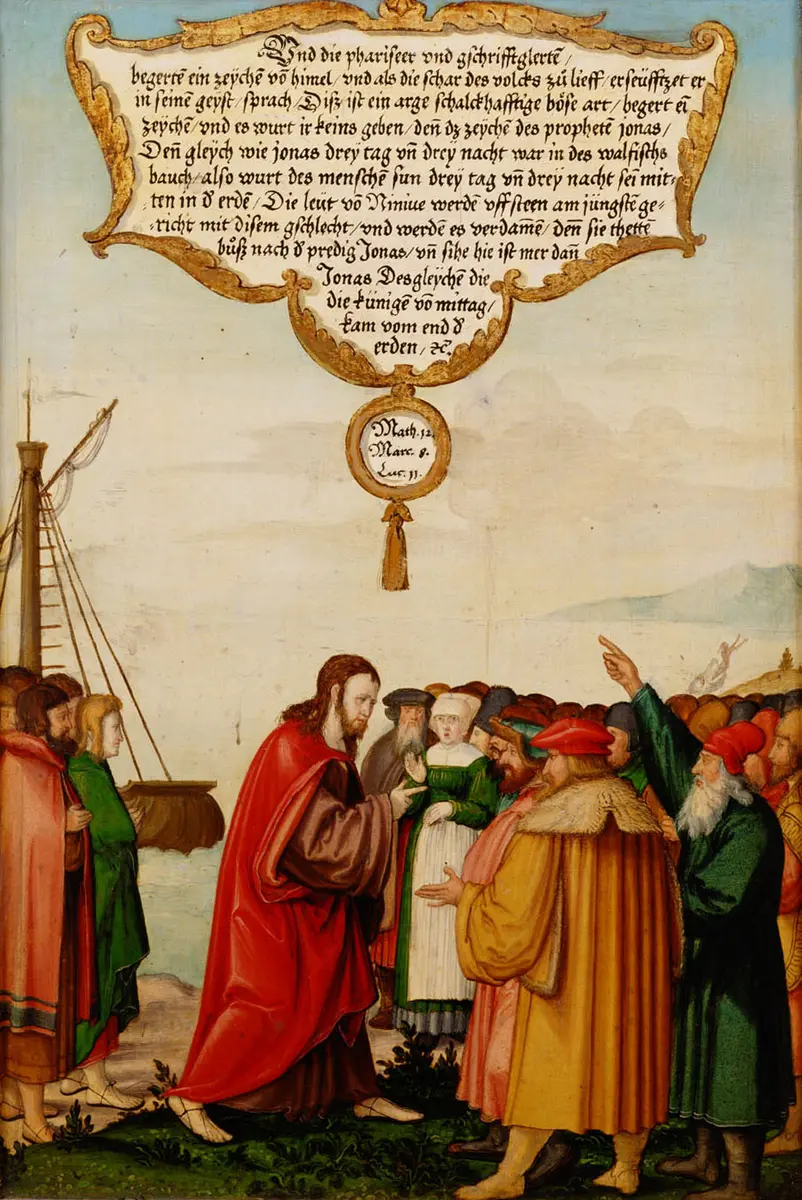 Vnd die phariseer vnd gschrifftglertē/
begertē ein zeÿchē vō himel/ vnd als die schar des volcks zů lieff/ erseüfftzet er
in seinē geyst/ sprach/ Disz ist ein arge schalckhafftige böse art/ begert eī
zeÿchē/ vnd es wurt ir keins geben/ deñ dz zeÿchē des prophetē jonas/
Deñ gleÿch wie jonas dreÿ tag vñ dreÿ nacht war in des walfischs
bauch/ also wurt des menschē sun dreÿ tag vñ dreÿ nacht sei mit-
ten in d̄ erdē/ Die leüt vō Niniue werdē vffsteen am jüngstē ge-
richt mit disem gschlecht/ vnd werdē es verdamē/ deñ sie thettē
bůsz nach d̄ predig Jonas/ vñ sihe hie ist mer dañ
Jonas Desgleÿchē die
die künigē vō mittag/
kam vom end d̄
erden/ ꝛc̄.
Math. 12.
Marc. 8.
Luc. 11.